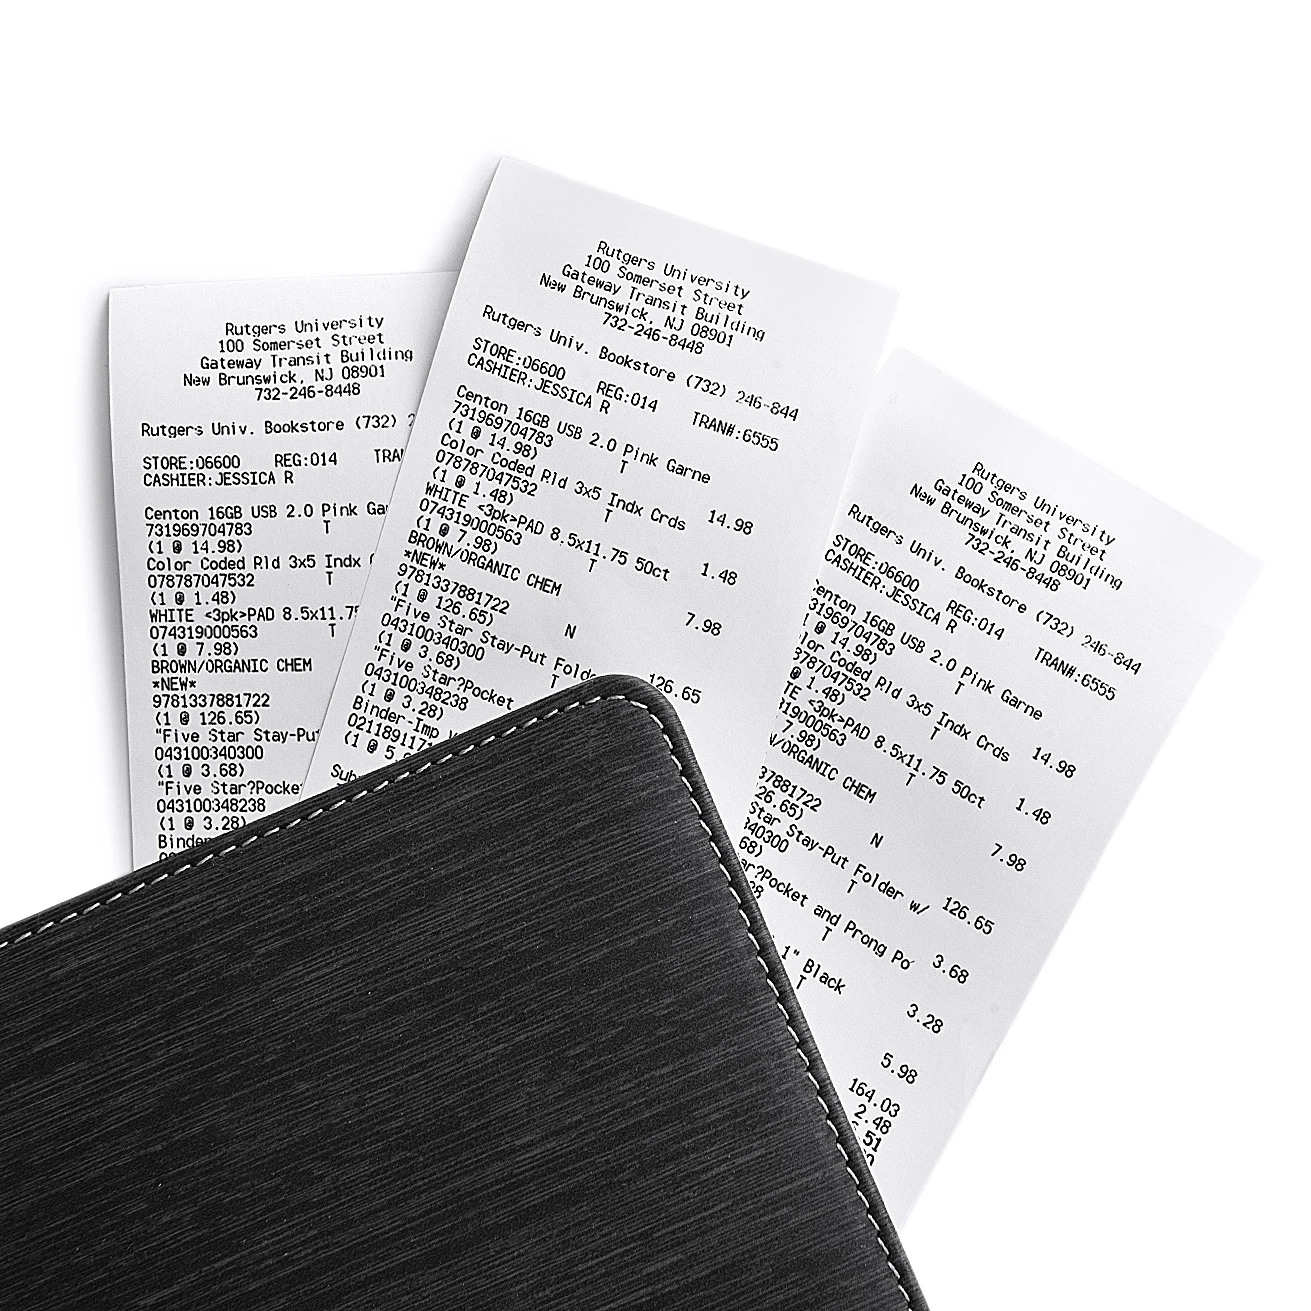 Rutgers University
100 Somerset Street
Gateway Transit Building
New Brunswick, NJ 08901
732-246-8448
Rutgers Univ. Bookstore (732)
STORE:06600 REG:014
CASHIER:JESSICA R
Centon 16GB USB 2.0 Pink
731969704783 T
(1 @ 14.98)
Color Coded Rld 3x5 Indx
078787047532 T
(1 @ 1.48)
WHITE <3pk>PAD 8.5x11.75
074319000563 T
(1 @ 7.98)
BROWN/ORGANIC CHEM
*NEW*
9781337881722
(1 @ 126.65)
"Five Star Stay-Put
043100340300
(1 @ 3.68)
"Five Star?Pocket
043100348238
(1 @ 3.28)
Binder
Rutgers University
100 Somerset Street
Gateway Transit Building
New Brunswick, NJ 08901
732-246-8448
Rutgers Univ. Bookstore (732) 246-844
STORE:06600 REG:014 TRAN#:6555
CASHIER:JESSICA R
Centon 16GB USB 2.0 Pink Garne
731969704783 T 14.98
(1 @ 14.98)
Color Coded Rld 3x5 Indx Crds
078787047532 T 1.48
(1 @ 1.48)
WHITE <3pk>PAD 8.5x11.75 50ct
074319000563 T 7.98
(1 @ 7.98)
BROWN/ORGANIC CHEM
*NEW*
9781337881722 N 126.65
(1 @ 126.65)
"Five Star Stay-Put Folde
043100340300 T
(1 @ 3.68)
"Five Star?Pocket
043100348238
(1 @ 3.28)
Binder-Imp
0211891171
(1 @ 5.9
Sub
Rutgers University
100 Somerset Street
Gateway Transit Building
New Brunswick, NJ 08901
732-246-8448
Rutgers Univ. Bookstore (732) 246-844
STORE:06600 REG:014 TRAN#:6555
CASHIER:JESSICA R
enton 16GB USB 2.0 Pink Garne
31969704783 T 14.98
@ 14.98)
lor Coded Rld 3x5 Indx Crds
8787047532 T 1.48
@ 1.48)
TE <3pk>PAD 8.5x11.75 50ct
319000563 T 7.98
7.98)
/ORGANIC CHEM
37881722 N 126.65
26.65)
Star Stay-Put Folder w/
40300 T 3.68
68)
ar?Pocket and Prong Po
T 3.28
1" Black
T 5.98
164.03
2.48
51